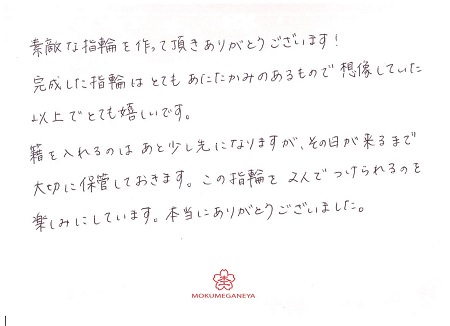 素敵な指輪を作って頂きありがとうございます!
完成した指輪はとてもあたたかみのあるもので想像していた
以上でとても嬉しいです。
籍を入れるのはあと少し先になりますが、その日が来るまで
大切に保管しておきます。この指輪を2人でつけられるのを
楽しみにしています。本当にありがとうございました。
MOKUMEGANEYA